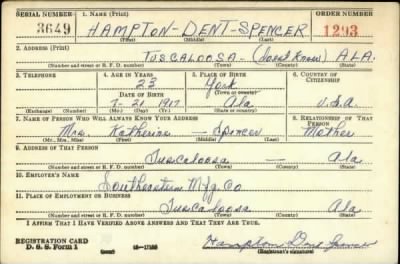 SERIAL NUMBER 1. NAME (Print) ORDER NUMBER
3649 HAMPTON-DENT-SPENCER 1293
(First) (Middle) (Last)
2. ADDRESS (Print)
TUSCALOOSA - (Doest Know) ALA.
(Number and street or R. F. D. number) (Town) (County) (State)
3. TELEPHONE 4. AGE IN YEARS 5. PLACE OF BIRTH 6. COUNTRY OF CITIZENSHIP
23 York
DATE OF BIRTH (Town or county)
7-21 1917 Ala U.S.A
(Exchange) (Number) (Mo.) (Day) (Yr.) (State or country)
7. NAME OF PERSON WHO WILL ALWAYS KNOW YOUR ADDRESS 8. RELATIONSHIP OF THAT PERSON
Mrs. Katherine - Spencer Mother
(Mr., Mrs., Miss) (First) (Middle) (Last)
9. ADDRESS OF THAT PERSON
Tuscaloosa - Ala
(Number and street or R. F. D. number) (Town) (County) (State)
10. EMPLOYER'S NAME
Southeastern Mfg. Co
11. PLACE OF EMPLOYMENT OR BUSINESS
Tuscaloosa Ala
(Number and street or R. F. D. number) (Town) (County) (State)
I AFFIRM THAT I HAVE VERIFIED ABOVE ANSWERS AND THAT THEY ARE TRUE.
REGISTRATION CARD
D. S. S. Form 1 (over) Hampton Dent Spencer
(Registrant's signature)